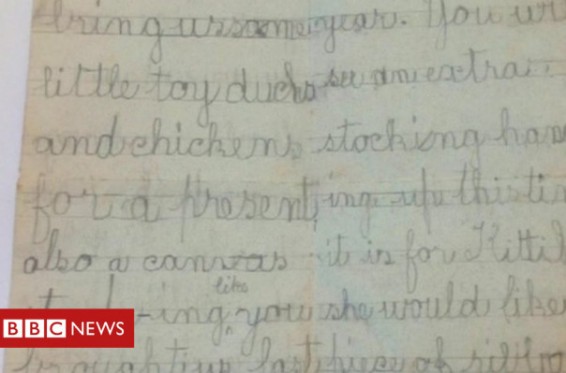 bring us some year. You wi
little toy ducks see an extra
and chickens stocking han
for a present, ing up this tim
also a canvas it is for Kitti
-ing like you she would like
last piece of
BBC NEWS